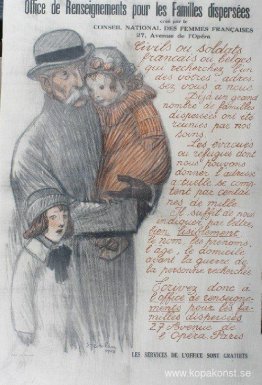 Office de Renseignements pour les Familles dispersées
créé par le
CONSEIL NATIONAL DES FEMMES FRANÇAISES
27, Avenue de l'Opéra
Civils ou soldats
français ou belges
qui recherchez l'un
des vôtres adres
sez vous à nous
Déjà un grand
nombre de familles
dispersées ont été
réunies par nos
soins.
Les évacués
ou réfugiés dont
nous pouvons
donner l'adresse
actuelle se comp
tent par centai
nes de mille
Il suffit de nous
indiquer par lettre,
bien lisiblement
le nom, les prénoms,
l'age, le domicile
avant la guerre de
la personne recherchée
Ecrivez donc à
l'office de renseigne-
ments pour les fa-
milles dispersées
27 Avenue de
l'Opéra Paris
LES SERVICES DE L'OFFICE SONT GRATUITS
www.kopakonst.se